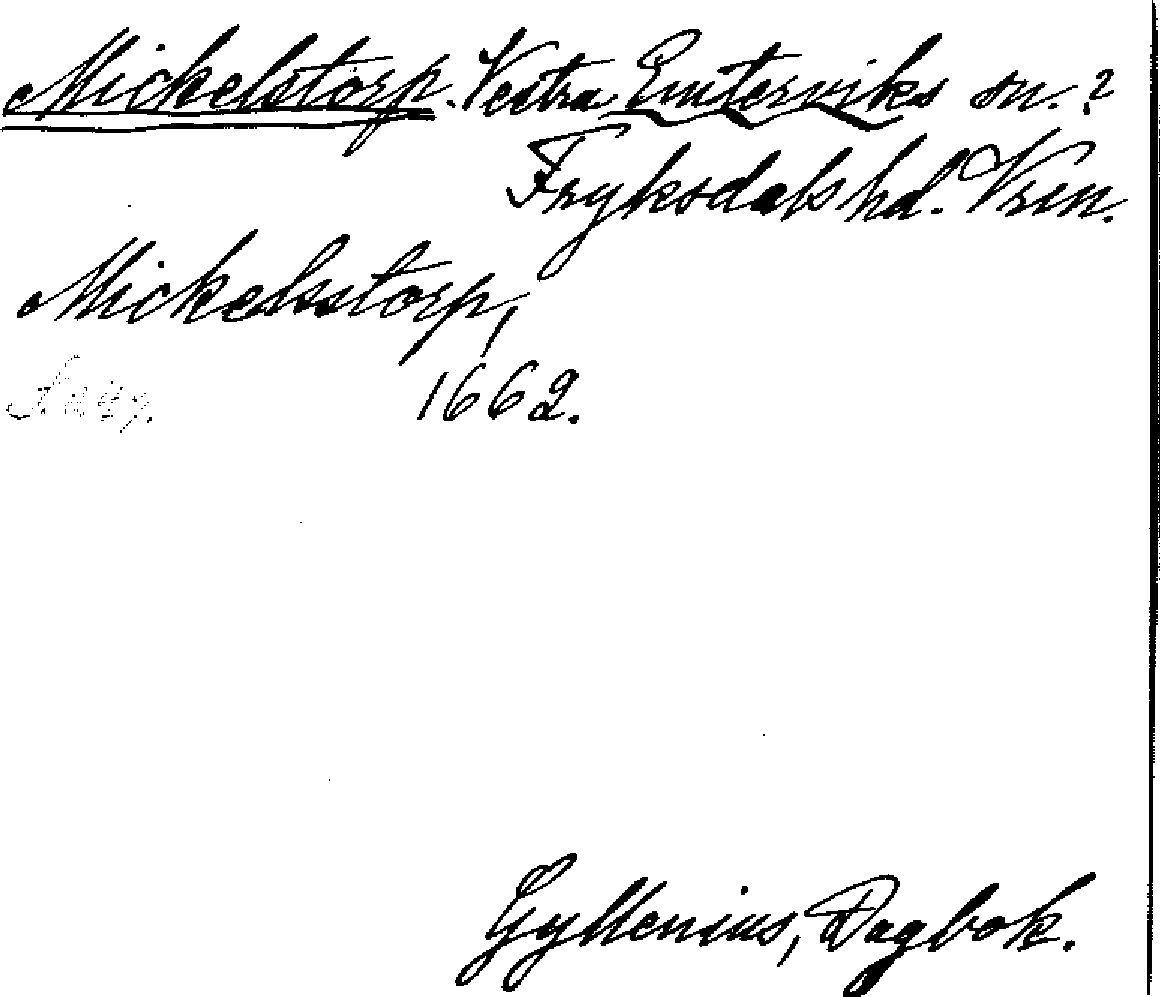 Mickelstorp. Vestra Emterviks sn.?
Fryksdals hd. Vrm.
Mickelsstorp,
1662.
Gyllenius, Dagbok.